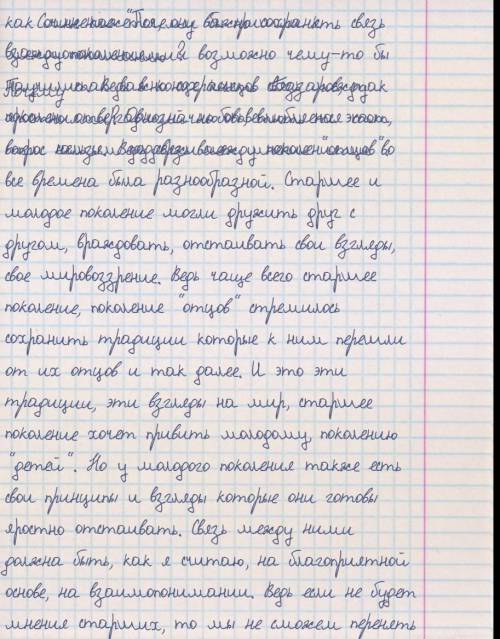 как Сочинение "Почему важно сохранять связь
между поколениями? и возможно чему-то бы
Почему
во
все времена была разнообразной. Старшее и
молодое поколение могли дружить друг с
другом, враждовать, отстаивать свои взгляды,
свое мировоззрение. Ведь чаще всего старшее
поколение, поколение "отцов" стремилось
сохранить традиции которые к ним перешли
от их отцов и так далее. И это эти
традиции, эти взгляды на мир, старшее
поколение хочет привить молодому, поколению
"детей". Но у молодого поколения также есть
свои принципы и взгляды которые они готовы
яростно отстаивать. Связь между ними
должна быть, как я считаю, на благоприятной
основе, на взаимопонимании. Ведь если не будет
мнения старших, то мы не сможем перенять